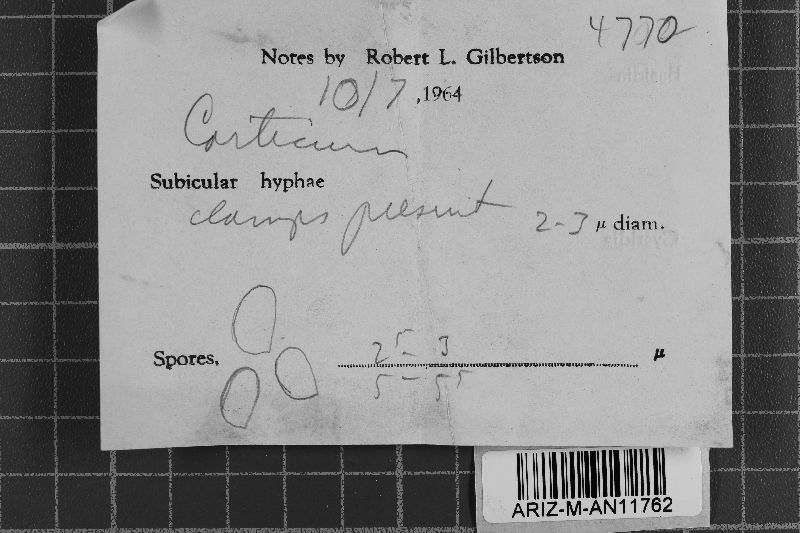 4770
Notes by Robert L. Gilbertson
10/7, 1964
Corticium
Subicular hyphae
clamps present 2-3 µ diam.
Spores, 2⁵- 3 µ
5 - 5⁵
ARIZ-M-AN11762